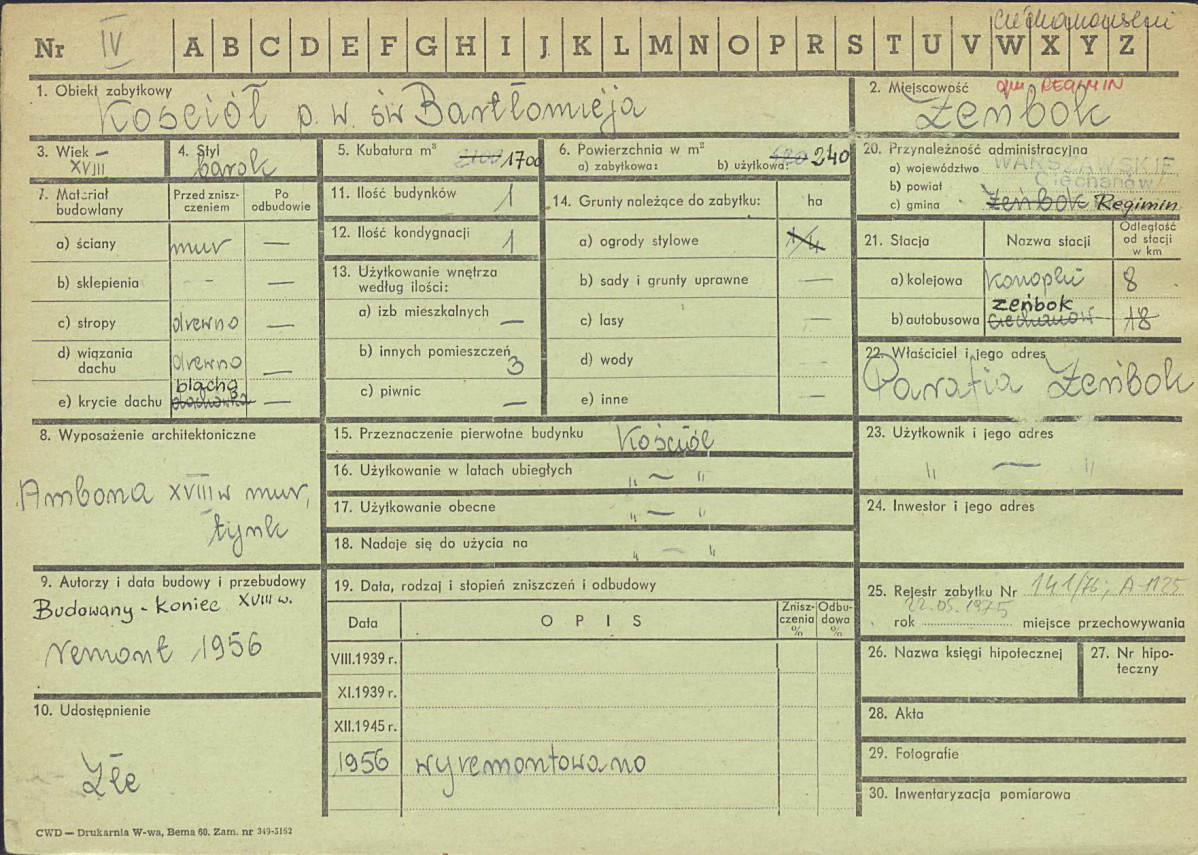 Ciechanowski
Nr IV A B C D E F G H I J K L M N O P R S T U V W X Y Z
1. Obiekt zabytkowy
Kościół p. w. św Bartłomieja
2. Miejscowość gm. REGIMIN
Żeńbok
3. Wiek
XVIII
4. Styl
barok
5. Kubatura m³ 1700
6. Powierzchnia w m²
a) zabytkowa: b) użytkowa: 240
20. Przynależność administracyjna
a) województwo WARSZAWSKIE
b) powiat Ciechanów
c) gmina Żeńbok Regimin
7. Materiał budowlany
Przed zniszczeniem
Po odbudowie
a) ściany mur —
b) sklepienia -
c) stropy drewno —
d) wiązania dachu drewno —
e) krycie dachu blacha dachówka —
11. Ilość budynków 1
12. Ilość kondygnacji 1
13. Użytkowanie wnętrza
według ilości:
a) izb mieszkalnych —
b) innych pomieszczeń 3
c) piwnic —
14. Grunty należące do zabytku: ha
a) ogrody stylowe
b) sady i grunty uprawne —
c) lasy —
d) wody -
e) inne -
21. Stacja
Nazwa stacji
Odległość
od stacji
w km
a) kolejowa Konopki 8
b) autobusowa Żeńbok Ciechanów 18
22. Właściciel i jego adres
Parafia Żeńbok
8. Wyposażenie architektoniczne
Ambona XVIII w mur,
tynk
15. Przeznaczenie pierwotne budynku Kościół
16. Użytkowanie w latach ubiegłych „ — "
17. Użytkowanie obecne „ — "
18. Nadaje się do użycia na „ — "
23. Użytkownik i jego adres
" — "
24. Inwestor i jego adres
9. Autorzy i data budowy i przebudowy
Budowany - koniec XVIII w.
remont 1956
19. Data, rodzaj i stopień zniszczeń i odbudowy
Data
O P I S
Zniszczenia %
Odbudowa %
VIII.1939 r.
XI.1939 r.
XII.1945 r.
1956 wyremontowano
25. Rejestr zabytku Nr 141/76; A-1125
22.05.1975
rok miejsce przechowywania
26. Nazwa księgi hipotecznej
27. Nr hipoteczny
28. Akta
29. Fotografie
30. Inwentaryzacja pomiarowa
10. Udostępnienie
Złe
CWD — Drukarnia W-wa, Bema 60. Zam. nr 349-5162